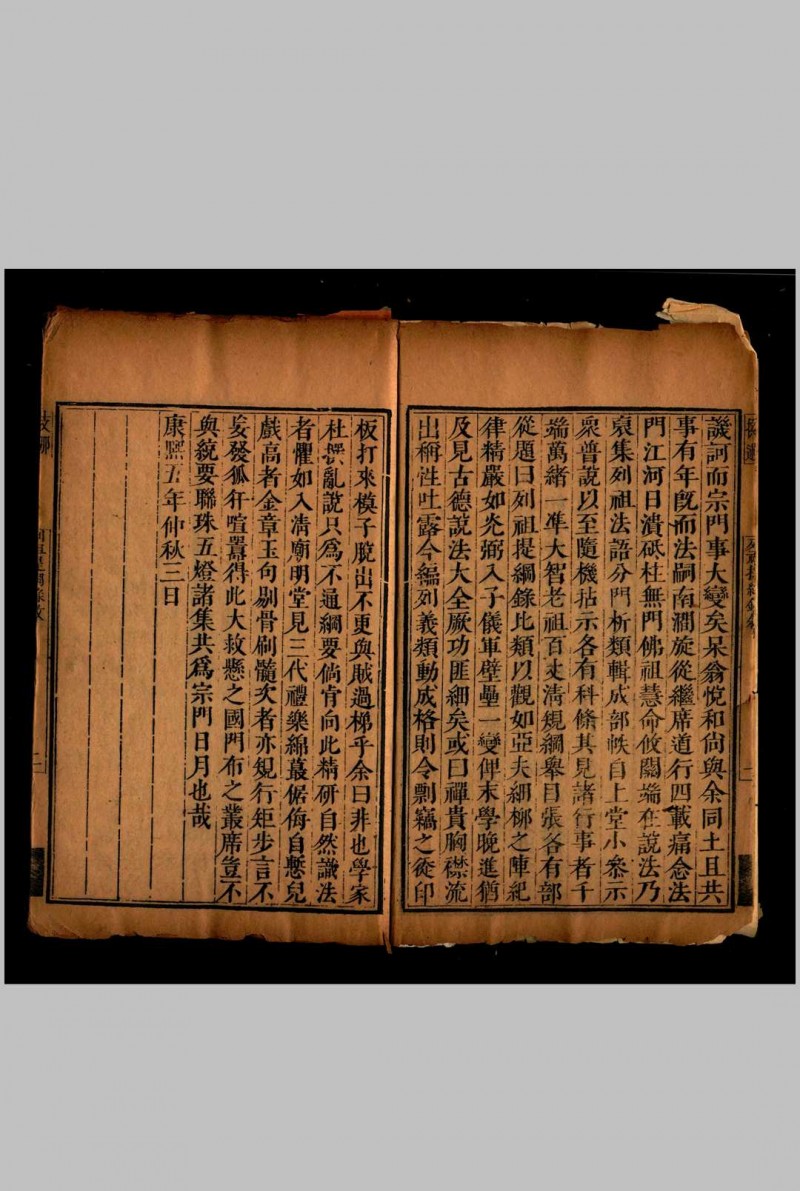 譏訶而宗門事大變矣杲翁悅和尙與余同土且共
事有年旣而法嗣南澗旋從繼席道行四載痛念法
門江河日潰砥杜無門佛祖慧命攸關端在說法乃
裒集列祖法語分門析類輯成部帙自上堂小參示
衆普說以至隨機拈示各有科條其見諸行事者千
端萬緒一準大智老祖百丈淸規綱舉目張各有部
從題曰列祖提綱錄比類以觀如亞夫細柳之陣紀
律精嚴如光弼入子儀軍壁壘一變俾末學晚進猶
及見古德說法大全厥功匪細矣或曰禪貴胸襟流
出稱性吐露今編列義類動成格則令剽竊之徒印
板打來模子脫出不更與賊過梯乎余曰非也學家
杜撰亂說只爲不通綱要倘肯向此精研自然識法
者懼如入淸廟明堂見三代禮樂綿蕞倨侮自慙兒
戲高者金章玉句剔骨刷髓次者亦規行矩步言不
妄發狐犴喧囂得此大救懸之國門布之叢席豈不
與統要聯珠五燈諸集共爲宗門日月也哉
康熙五年仲秋三日